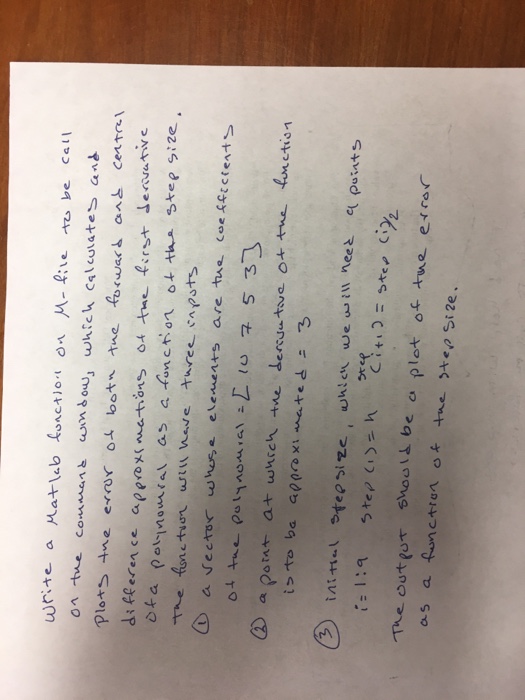 Write a Matlab function on M-file to be call
on the command window, which calculates and
Plots the error of both the forward and central
difference approximations of the first derivative
of a polynomial as a function of the step size.
The function will have three inputs
① a vector whose elements are the coefficients
of the polynomial = [ 10 7 5 3]
② a point at which the derivative of the function
is to be approximated = 3
③ initial stepsize, which we will need 9 points
i=1:9 step(1)=h step(i+1)=step(i)/2
The output should be a plot of the error
as a function of the step size.